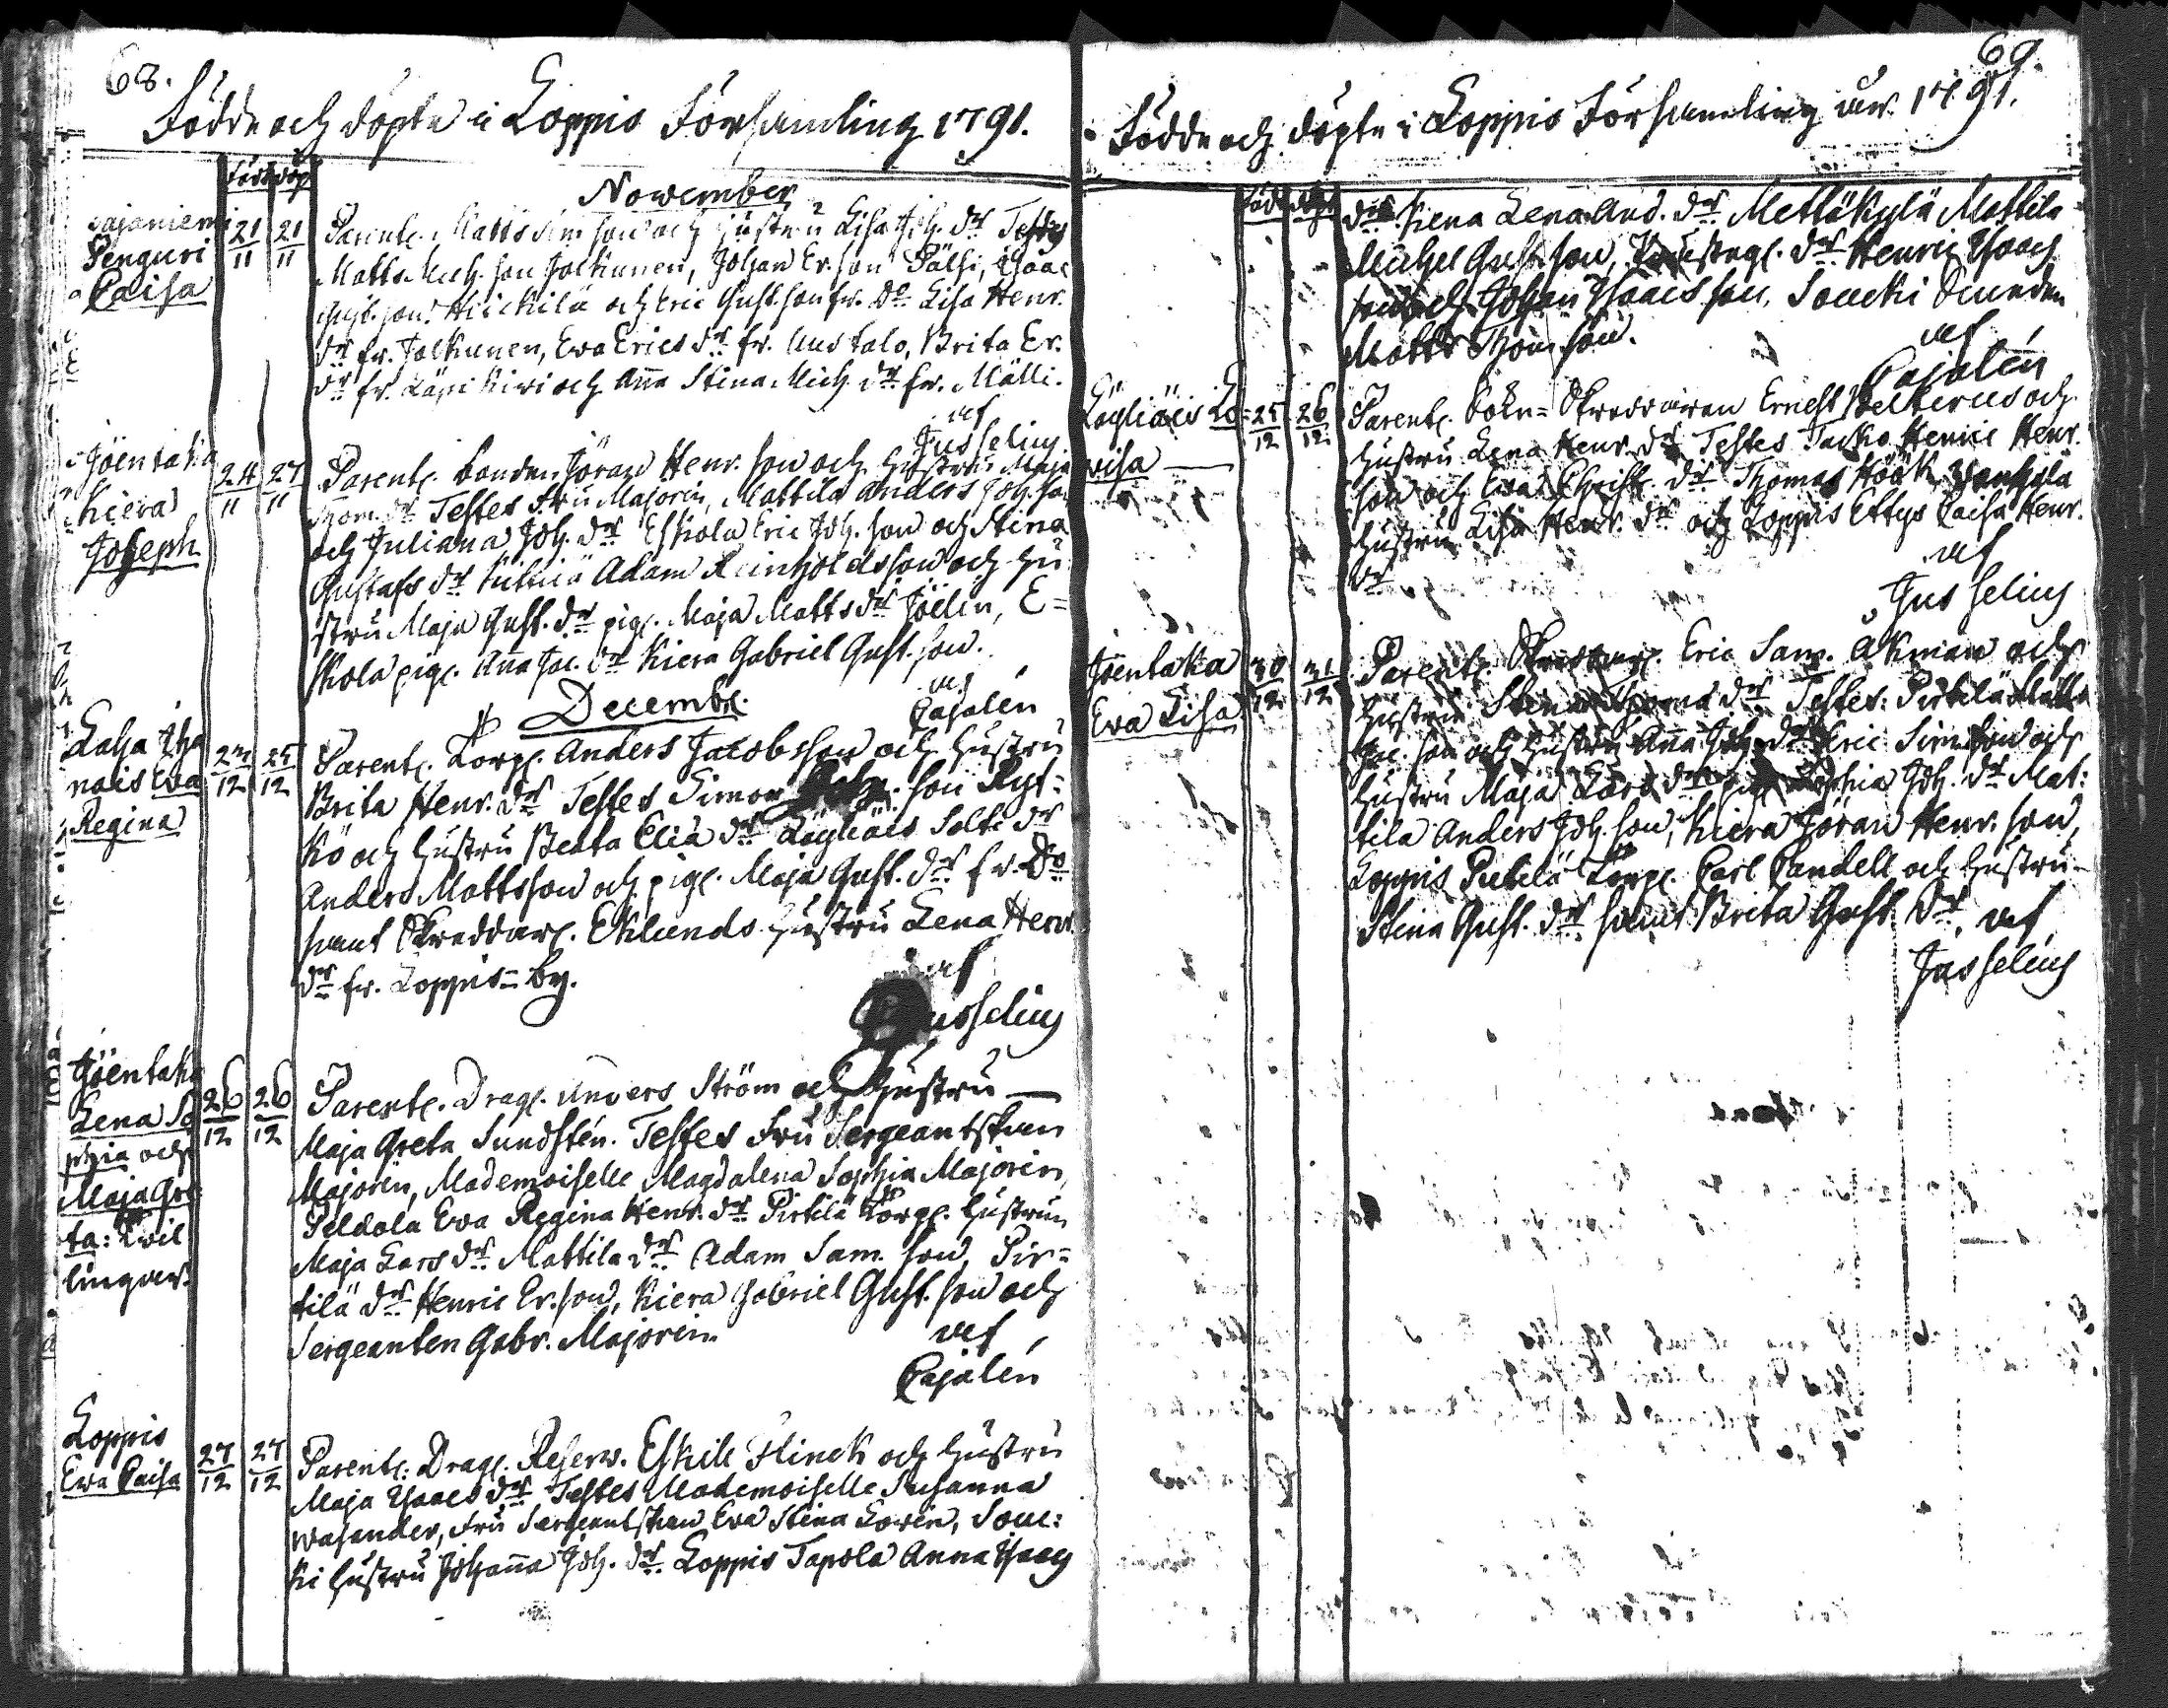 68.
Födde och döpte i Loppis Församling 1791.
Född döp
November
Sajaniemi
Penguri
Caisa
21/11 21/11
Parent. Matts Sim. son och hustru Lisa Joh. dr Testes
Matts Mich. son Jolkinen, Johan Er. son Pälsi, Isaac
Gust. son Heickilä och Eric Gust. son fr. Do Lisa Henr.
dr fr. Jolkinen, Ewa Erics dr fr. Uustalo, Brita Er.
dr fr. Läpikiwi och Anna Stina Mich. dr fr. Mälli.
af
Jusselius
Jöentaka
Kiera
Joseph
24/11 27/11
Parent. bonden Jöran Henr. son och hustru Maja
Thom. dr Testes Fru Majorin, Mattila Anders Joh. son
och Juliana Joh. dr Eskola Eric Joh. son och Stina
Gustafs dr Adam Reinholdsson och hu-
stru Maja Gust. dr pig. Maja Matts dr Jöelin, E=
skola pig. Anna Jac. dr Kiera Gabriel Gust. son.
af
Cajalén
Decemb.
Latja Itä
nois Ewa
Regina
23/12 25/12
Parent. Torp. Anders Jacobsson och hustru
Brita Henr. dr Testes Simon son Ryt=
kö och hustru Beata Elia dr Läyliäis Solti dr
Anders Mattsson och pig. Maja Gust. dr fr. Do
samt Skreddar. Eklunds hustru Lena Henr.
dr fr. Loppis= by.
af
Jusselius
Jöentaka
Lena So
phia och
Maja Gre
ta: twil
lingar.
26/12 26/12
Parent. Drag. Anders Ström och hustru —
Maja Greta Sundstén. Testes Fru Sergeantskan
Majorin, Mademoiselle Magdalena Sophia Majorin,
Peldola Ewa Regina Henr. dr Pirtilä Torp. hustrun
Maja Lars dr Mattila dr Adam Sam. son, Pir=
tilä dr Henric Er. son, Kiera Gabriel Gust. son och
Sergeanten Gabr. Majorin.
af
Cajalén
Loppis
Ewa Caisa
27/12 27/12
Parent: Drag. Reserv. Eskill Flinck och hustru
Maja Isaacs dr Testes Mademoiselle Susanna
Wasander, Fru Sergeantskan Ewa Stina Lorin, Sou=
ki hustru Johanna Joh. dr Loppis Tapola Anna Isacs
69.
Födde och döpte i Loppis Församling år 1791.
Född döpt
dr Lena And. dr Mettäkylä Mattila
Michel Gust. son, dr Henric Isaac
son och Johan Isaacs son, Souki
Matts Thom. son.
af
Cajalén
Läyliäis Lo=
wisa —
25/12 26/12
Parent. Sokn= Skreddaren Ernest och
hustru Lena Henr. dr Testes Jacko Henric Henr.
son och Ewa Christ. dr Thomas Höök, Wanhala
hustru Lisa Henr. dr och Loppis Ettys Caisa Henr.
dr
af
Jusselius
Jöentaka
Ewa Lisa
30/12 31/12
Parent. Eric Sam. Åkman och
hustru Stina Thoma dr Testes: Pirtilä Matts
son och hustru Anna Joh. dr Eric Sim. son och
hustru Maja Lars dr pig. Sophia Joh. dr Mat:
tila Anders Joh. son, Kiera Jöran Henr. son,
Loppis Pietilä Torp. Carl Randell och hustru
Stina Gust. dr samt Brita Gust. dr. af
Jusselius